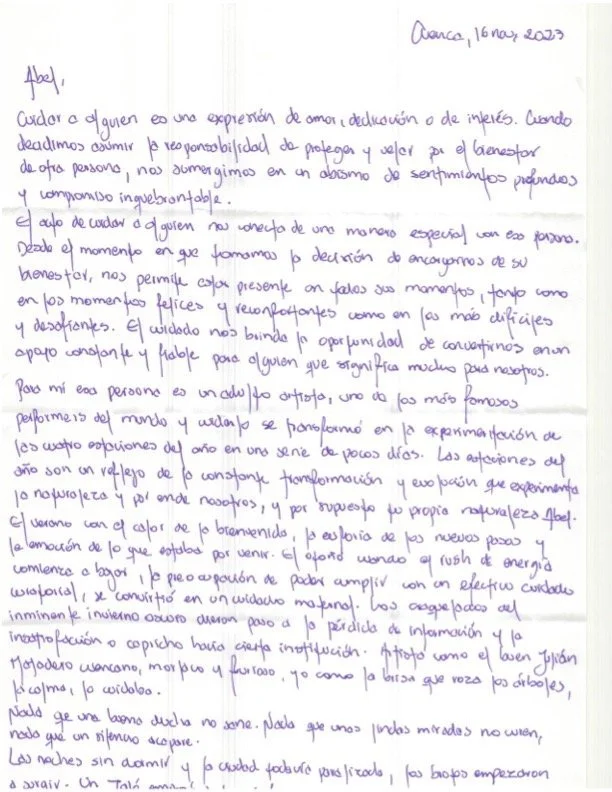 Cuenca, 16 nov, 2023
Abel,
Cuidar a alguien es una expresión de amor, dedicación o de interés. Cuando
decidimos asumir la responsabilidad de proteger y velar por el bienestar
de otra persona, nos sumergimos en un abismo de sentimientos profundos
y compromiso inquebrantable.
El acto de cuidar a alguien nos conecta de una manera especial con esa persona.
Desde el momento en que tomamos la decisión de encargarnos de su
bienestar, nos permite estar presente en todos sus momentos, tanto como
en los momentos felices y reconfortantes como en los más difíciles
y desafiantes. El cuidado nos brinda la oportunidad de convertirnos en un
apoyo constante y fiable para alguien que significa mucho para nosotros.
Para mí esa persona es un adulto artista, uno de los más famosos
performers del mundo y cuidarlo se transformó en la experimentación de
las cuatro estaciones del año en una serie de pocos días. Las estaciones del
año son un reflejo de la constante transformación y evolución que experimenta
la naturaleza y por ende nosotros, y por supuesto tu propia naturaleza Abel.
El verano con el calor de la bienvenida, la euforia de los nuevos pasos y
la emoción de lo que estaba por venir. El otoño cuando el rush de energía
comienza a bajar, la preocupación de poder cumplir con un efectivo cuidado
curatorial, se convirtió en un cuidado maternal. Los
inminente invierno oscuro dieron paso a la pérdida de información y la
insatisfacción o capricho hacia cierta institución. Artista como el buen Julián
Matadero cuencano, morlaco y furioso, yo como la brisa que roza los árboles,
la calma, lo cuidaba.
Nada que una buena ducha no sane. Nada que unas lindas miradas no curen,
nada que un silencio acapare.
Las noches sin dormir y la ciudad todavía paralizada, los brotes empezaron
a surgir. Un